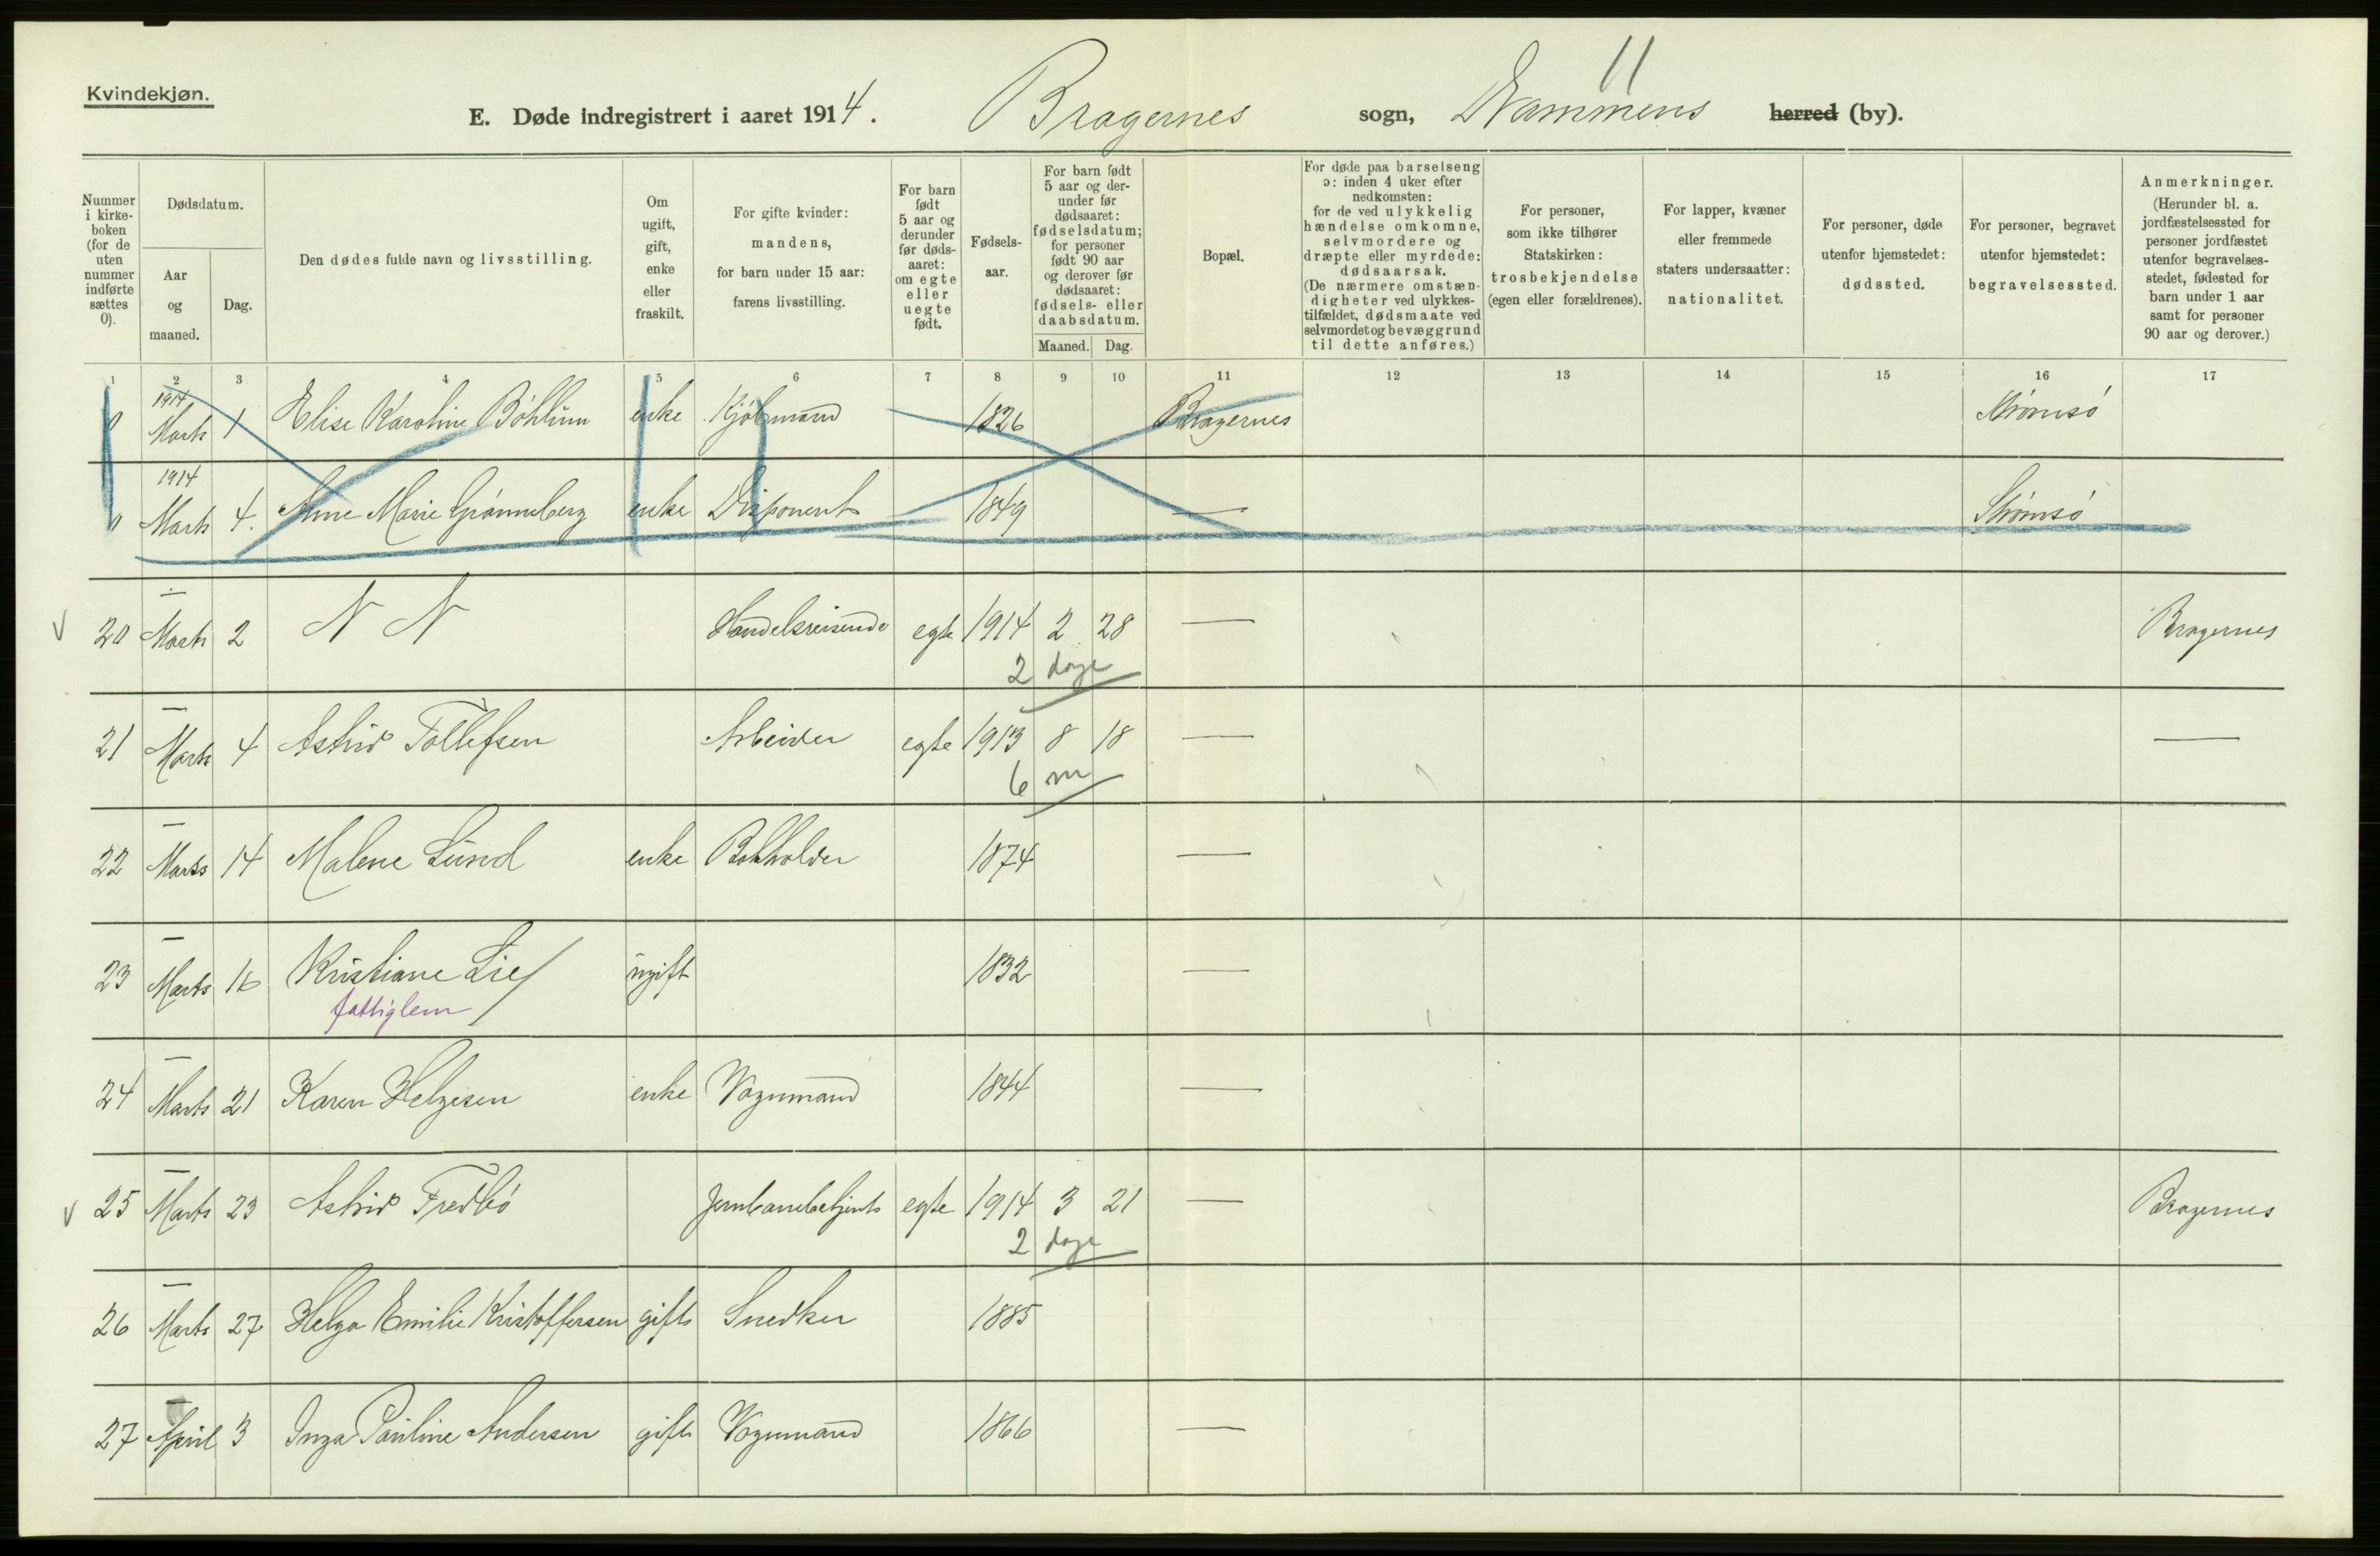 Kvindekjøn.
11
E. Døde indregistrert i aaret 1914. Bragernes sogn, Drammens herred (by).
Nummer i kirkeboken (for de uten nummer indførte sættes 0).
Dødsdatum.
Aar og maaned.
Dag.
Den dødes fulde navn og livsstilling.
Om ugift, gift, enke eller fraskilt.
For gifte kvinder: mandens, for barn under 15 aar: farens livsstilling.
For barn født 5 aar og derunder før dødsaaret: om egte eller uegte født.
Fødselsaar.
For barn født 5 aar og derunder før dødsaaret: fødselsdatum; for personer født 90 aar og derover før dødsaaret: fødsels- eller daabsdatum.
Maaned. Dag.
Bopæl.
For døde paa barselseng ɔ: inden 4 uker efter nedkomsten: for de ved ulykkelig hændelse omkomne, selvmordere og dræpte eller myrdede: dødsaarsak. (De nærmere omstændigheter ved ulykkestilfældet, dødsmaate ved selvmordet og bevæggrund til dette anføres.)
For personer, som ikke tilhører Statskirken: trosbekjendelse (egen eller forældrenes).
For lapper, kvæner eller fremmede staters undersaatter: nationalitet.
For personer, døde utenfor hjemstedet: dødssted.
For personer, begravet utenfor hjemstedet: begravelsessted.
Anmerkninger. (Herunder bl. a. jordfæstelsessted for personer jordfæstet utenfor begravelsesstedet, fødested for barn under 1 aar samt for personer 90 aar og derover.)
1 2 3 4 5 6 7 8 9 10 11 12 13 14 15 16 17
0 1914 Marts 1 Elise Karoline Böhlum enke Kjøbmand 1826 Bragernes Strømsö
0 1914 Marts 4. Anne Marie Grønneberg enke Disponent 1849 — Strømsö
20 — Marts 2 N N Handelsreisende egte 1914 2 28 — Bragernes
2 dage
21 — Marts 4 Astrid Tollefsen Arbeider egte 1913 8 18 — —
6 m
22 — Marts 14 Malene Lund enke Bokholder 1874 —
23 — Marts 16 Kristiane Lie ugift 1832 —
fattiglem
24 — Marts 21 Karen Helgesen enke Vognmand 1844 —
25 — Marts 23 Astrid Fredbö Jernbanebetjent egte 1914 3 21 — Bragernes
2 dage
26 — Marts 27 Helga Emilie Kristoffersen gift Snedker 1885
27 — April 3 Inga Pauline Andersen gift Vognmand 1866 —